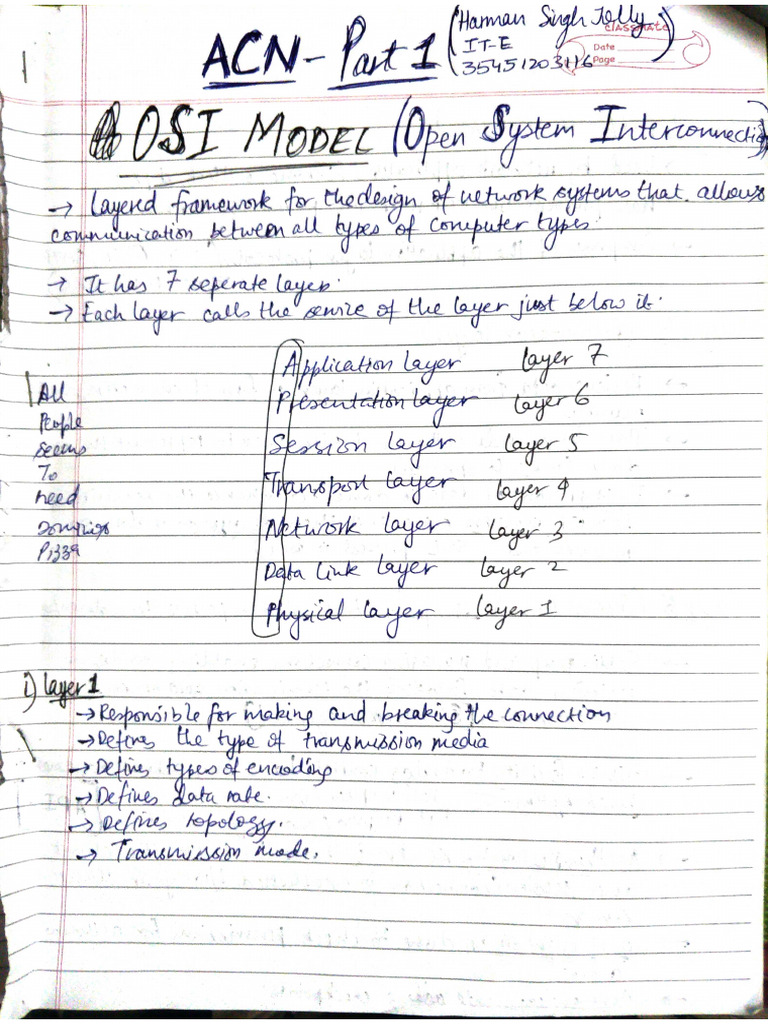 ACN - Part 1
(Harman Singh Jolly
IT-E
35451203116)
classmate
Date
Page
OSI MODEL (Open System Interconnection)
→ Layered framework for the design of network systems that allows
communication between all types of computer types.
→ It has 7 seperate layers.
→ Each layer calls the service of the layer just below it.
All
People
Seems
To
need
Dominos
Pizza
Application Layer Layer 7
Presentation Layer Layer 6
Session Layer Layer 5
Transport Layer Layer 4
Network Layer Layer 3
Data Link Layer Layer 2
Physical Layer Layer 1
i) Layer 1
→ Responsible for making and breaking the connection
→ Defines the type of transmission media
→ Defines types of encoding
→ Defines data rate.
→ Defines topology.
→ Transmission mode.